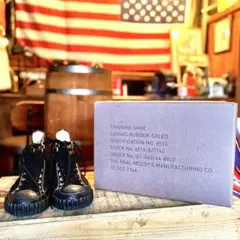 TRAINING SHOE
CANVAS, RUBBER-SOLED
SPECIFICATION NO. 9110
STOCK NO. 6510-827140
ORDER NO. QT-2461/44-8828
THE REAL McCOY'S MANUFACTURING CO.
10 DEC 1944